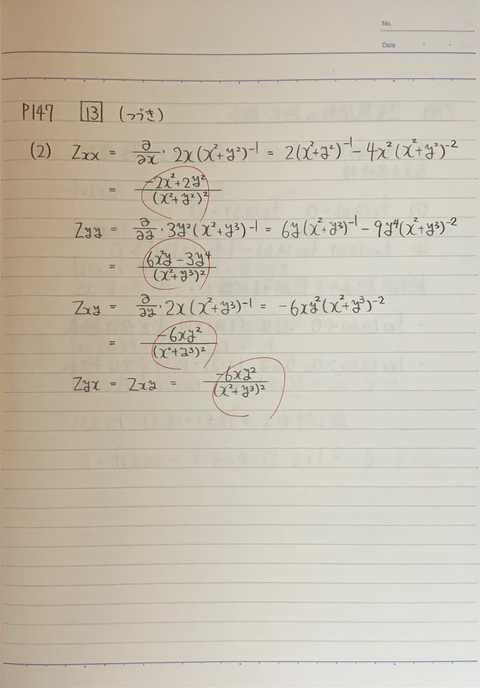 No.
Date
P147 [13] (つづき)
(2) Zxx = ∂/∂x · 2x(x²+y²)⁻¹ = 2(x²+y²)⁻¹ - 4x²(x²+y²)⁻²
= (-2x²+2y²)/(x²+y²)²
Zyy = ∂/∂y · 3y²(x²+y³)⁻¹ = 6y(x²+y³)⁻¹ - 9y⁴(x²+y³)⁻²
= (6x²y-3y⁴)/(x²+y³)²
Zxy = ∂/∂y · 2x(x²+y³)⁻¹ = -6xy²(x²+y³)⁻²
= -6xy²/(x²+y³)²
Zyx = Zxy = -6xy²/(x²+y³)²